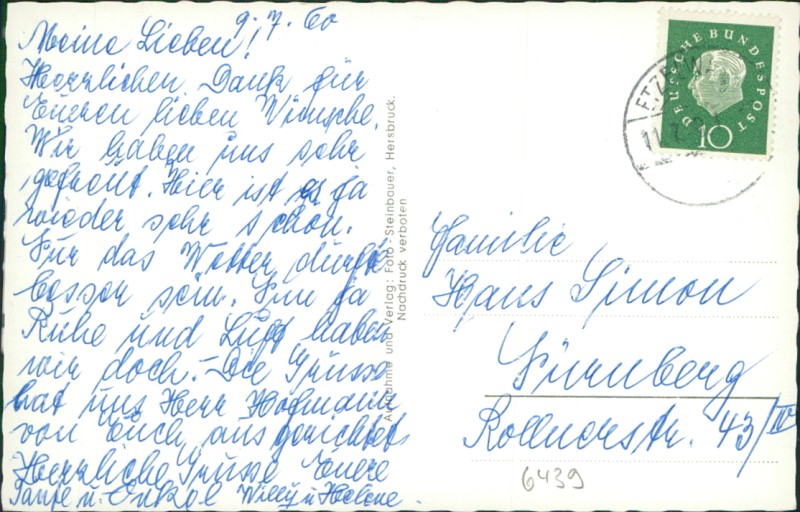 9.7.60
Meine Lieben!
Herzlichen Dank für
Eueren lieben Wünsche.
Wir haben uns sehr
gefreut. Hier ist es ja
wieder sehr schön.
Nur das Wetter dürft
besser sein. Nun ja
Ruhe und Luft haben
wir doch. - Die Grüsse
hat uns Herr Hofmann
von Euch ausgerichtet.
Herzliche Grüsse Euere
Tante u. Onkel Willy u Helene.
Aufnahme und Verlag: Foto-Steinbauer, Hersbruck.
Nachdruck verboten
DEUTSCHE BUNDESPOST
10
ETZELW
11.7.
Familie
Hans Simon
Nürnberg
Rollnerstr. 43/IV
6439